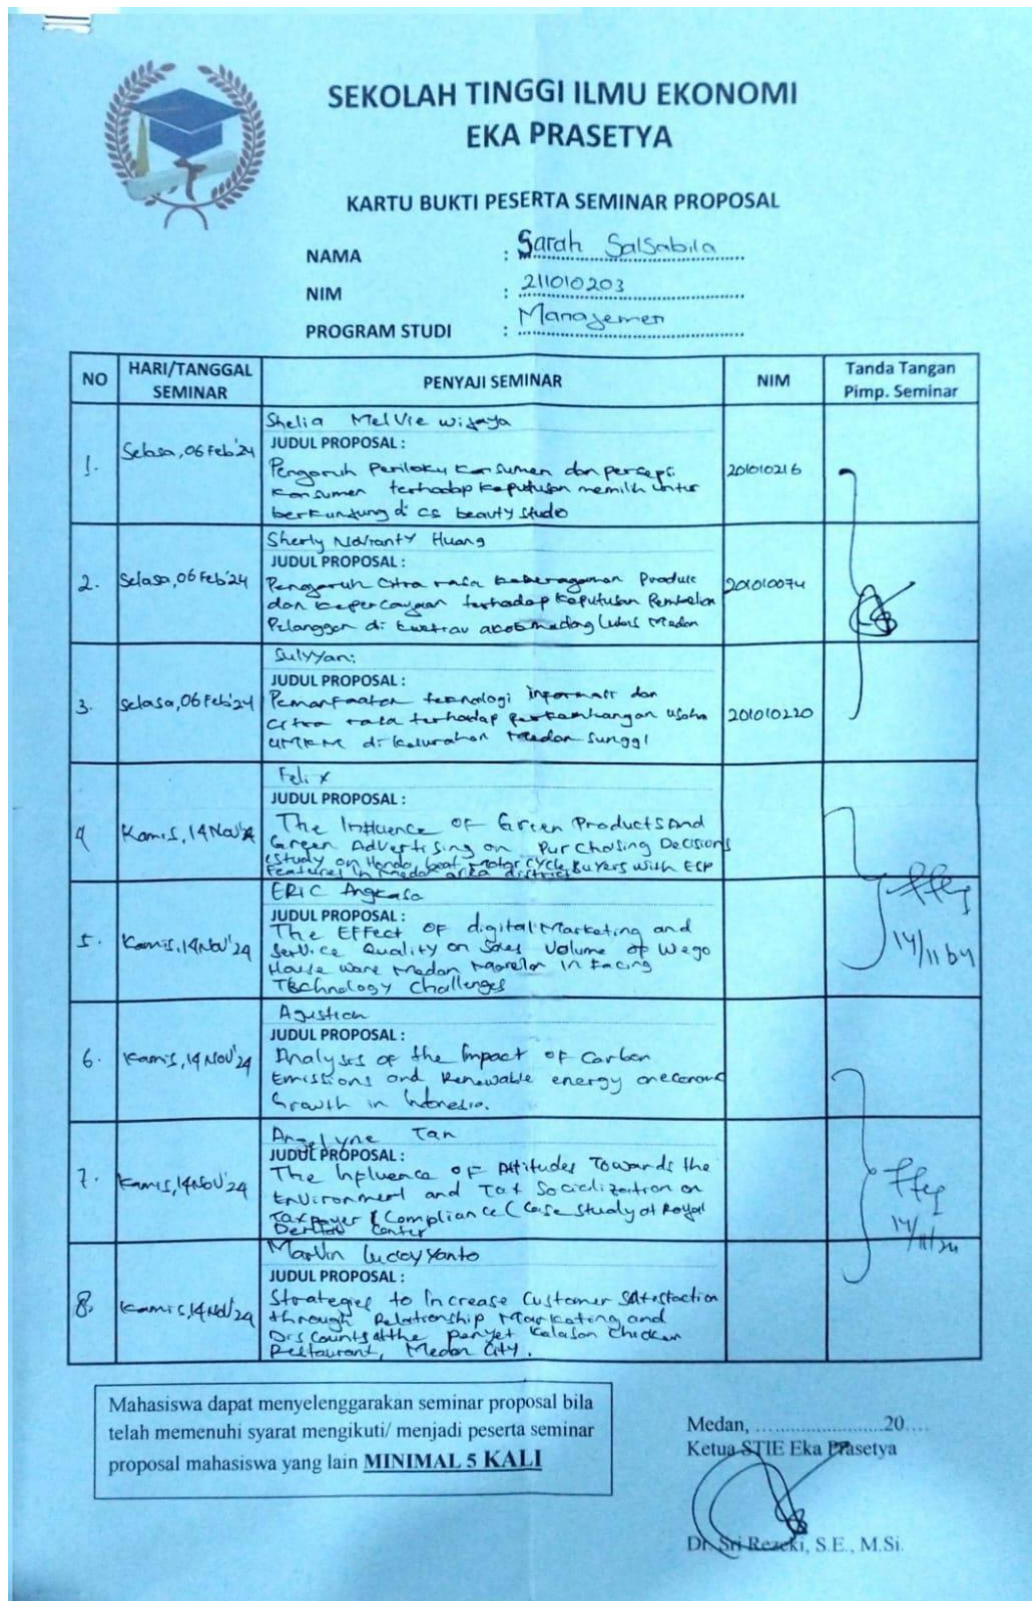 SEKOLAH TINGGI ILMU EKONOMI
EKA PRASETYA
KARTU BUKTI PESERTA SEMINAR PROPOSAL
NAMA : Sarah Salsabila
NIM : 211010203
PROGRAM STUDI : Manajemen
NO HARI/TANGGAL SEMINAR PENYAJI SEMINAR NIM Tanda Tangan Pimp. Seminar
Shelia Melvie Wijaya
1. Selasa, 06 Feb'24 JUDUL PROPOSAL : 201010216
Pengaruh Perilaku Konsumen dan persepsi
Konsumen terhadap keputusan memilih untuk
berkunjung di CS beauty studio
Sherly Novianty Huang
2. Selasa, 06 Feb'24 JUDUL PROPOSAL : 201010074
Pengaruh Citra rasa keberagaman Produk
dan kepercayaan terhadap Keputusan Pembelian
Pelanggan di Medan
Sulyyani
JUDUL PROPOSAL :
3. Selasa, 06 Feb'24 Pemanfaatan teknologi informasi dan 201010220
Citra rasa terhadap perkembangan usaha
UMKM di kelurahan Medan Sunggl
Felix
JUDUL PROPOSAL :
4 Kamis, 14 Nov'24 The Influence of Green Products And
Green Advertising on Purchasing Decisions
(Study on Honda beat Motorcycle Buyers with ESP
Features in Medan area district
ERIC Angkasa
JUDUL PROPOSAL :
5. Kamis, 14 Nov'24 The Effect of digital Marketing and
Service Quality on Sales Volume of Wego
House ware Medan In Facing
Technology Challenges
14/11 24
Agustian
JUDUL PROPOSAL :
6. Kamis, 14 Nov'24 Analyses of the Impact of Carbon
Emissions and Renewable energy on
Growth in Indonesia.
Angelyne Tan
JUDUL PROPOSAL :
7. Kamis, 14 Nov'24 The Influence of Attitudes Towards the
Environment and Tax Socialization on
Taxpayer Compliance (Case Study at Royal
Center
14/11/24
Marvin Luccy Yanto
JUDUL PROPOSAL :
8. Kamis, 14 Nov'24 Strategies to Increase Customer Satisfaction
through Relationship Marketing and
Discounts at the Penyet Kalasan Chicken
Restaurant, Medan City.
Mahasiswa dapat menyelenggarakan seminar proposal bila
telah memenuhi syarat mengikuti/ menjadi peserta seminar
proposal mahasiswa yang lain MINIMAL 5 KALI
Medan, ........................20....
Ketua STIE Eka Prasetya
Dr. Sri Rezeki, S.E., M.Si.